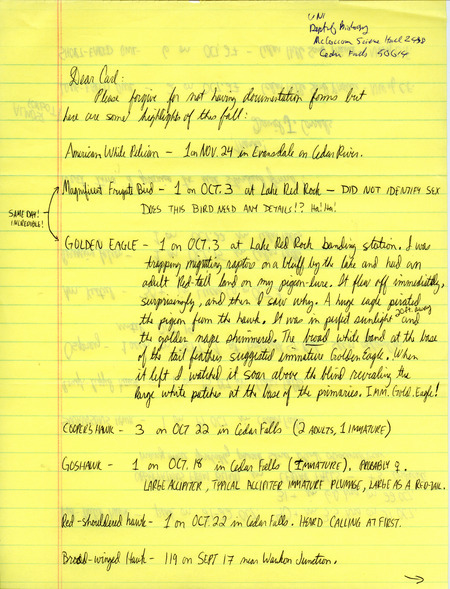 UNI
Dept of Biology
McCollum Science Hall 2438
Cedar Falls 50614
Dear Carl:
Please forgive for not having documentation forms but
here are some highlights of this fall:
American White Pelican - 1 on NOV. 24 in Evansdale on Cedar River.
Magnificent Frigate Bird - 1 on OCT. 3 at Lake Red Rock - DID NOT IDENTIFY SEX
DOES THIS BIRD NEED ANY DETAILS!? Ha! Ha!
SAME DAY!
INCREDIBLE!
GOLDEN EAGLE - 1 on OCT. 3 at Lake Red Rock banding station. I was
trapping migrating raptors on a bluff by the lake and had an
adult Red-tail land on my pigeon-lure. It flew off immediately,
surprisingly, and then I saw why. A huge eagle pirated
the pigeon from the hawk. It was in perfect sunlight 20ft. away and
the golden nape shimmered. The broad white band at the base
of the tail feathers suggested immature Golden Eagle. When
it left I watched it soar above the blind revealing the
large white patches at the base of the primaries. I.A.M. Gold. Eagle!
COOPER'S HAWK - 3 on OCT 22 in Cedar Falls (2 ADULTS, 1 IMMATURE)
GOSHAWK - 1 on OCT. 18 in Cedar Falls (IMMATURE). PROBABLY ♀.
LARGE ACCIPITER, TYPICAL ACCIPITER IMMATURE PLUMAGE, LARGE AS A RED-TAIL.
Red-shouldered hawk - 1 on OCT 22 in Cedar Falls. HEARD CALLING AT FIRST.
Broad-winged Hawk - 119 on SEPT 17 near Waukon Junction.
→